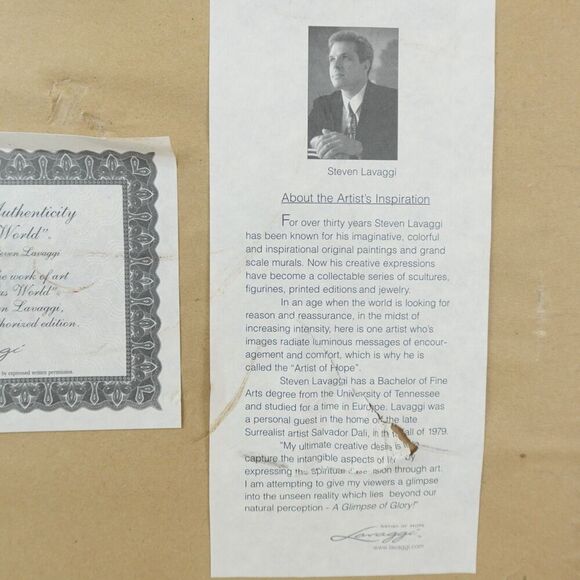 Authenticity
World".
Steven Lavaggi
work of art
World"
Lavaggi,
edition.
by expressed written permission.
Steven Lavaggi
About the Artist's Inspiration
For over thirty years Steven Lavaggi
has been known for his imaginative, colorful
and inspirational original paintings and grand
scale murals. Now his creative expressions
have become a collectable series of scultures,
figurines, printed editions and jewelry.
In an age when the world is looking for
reason and reassurance, in the midst of
increasing intensity, here is one artist who's
images radiate luminous messages of encour-
agement and comfort, which is why he is
called the "Artist of Hope".
Steven Lavaggi has a Bachelor of Fine
Arts degree from the University of Tennessee
and studied for a time in Europe. Lavaggi was
a personal guest in the home of the late
Surrealist artist Salvador Dali, in fall of 1979.
"My ultimate creative desire is
capture the intangible aspects of by
expressing the spiritual through art.
I am attempting to give my viewers a glimpse
into the unseen reality which lies beyond our
natural perception - A Glimpse of Glory!"
ARTIST OF HOPE
Lavaggi
www.lavaggi.com